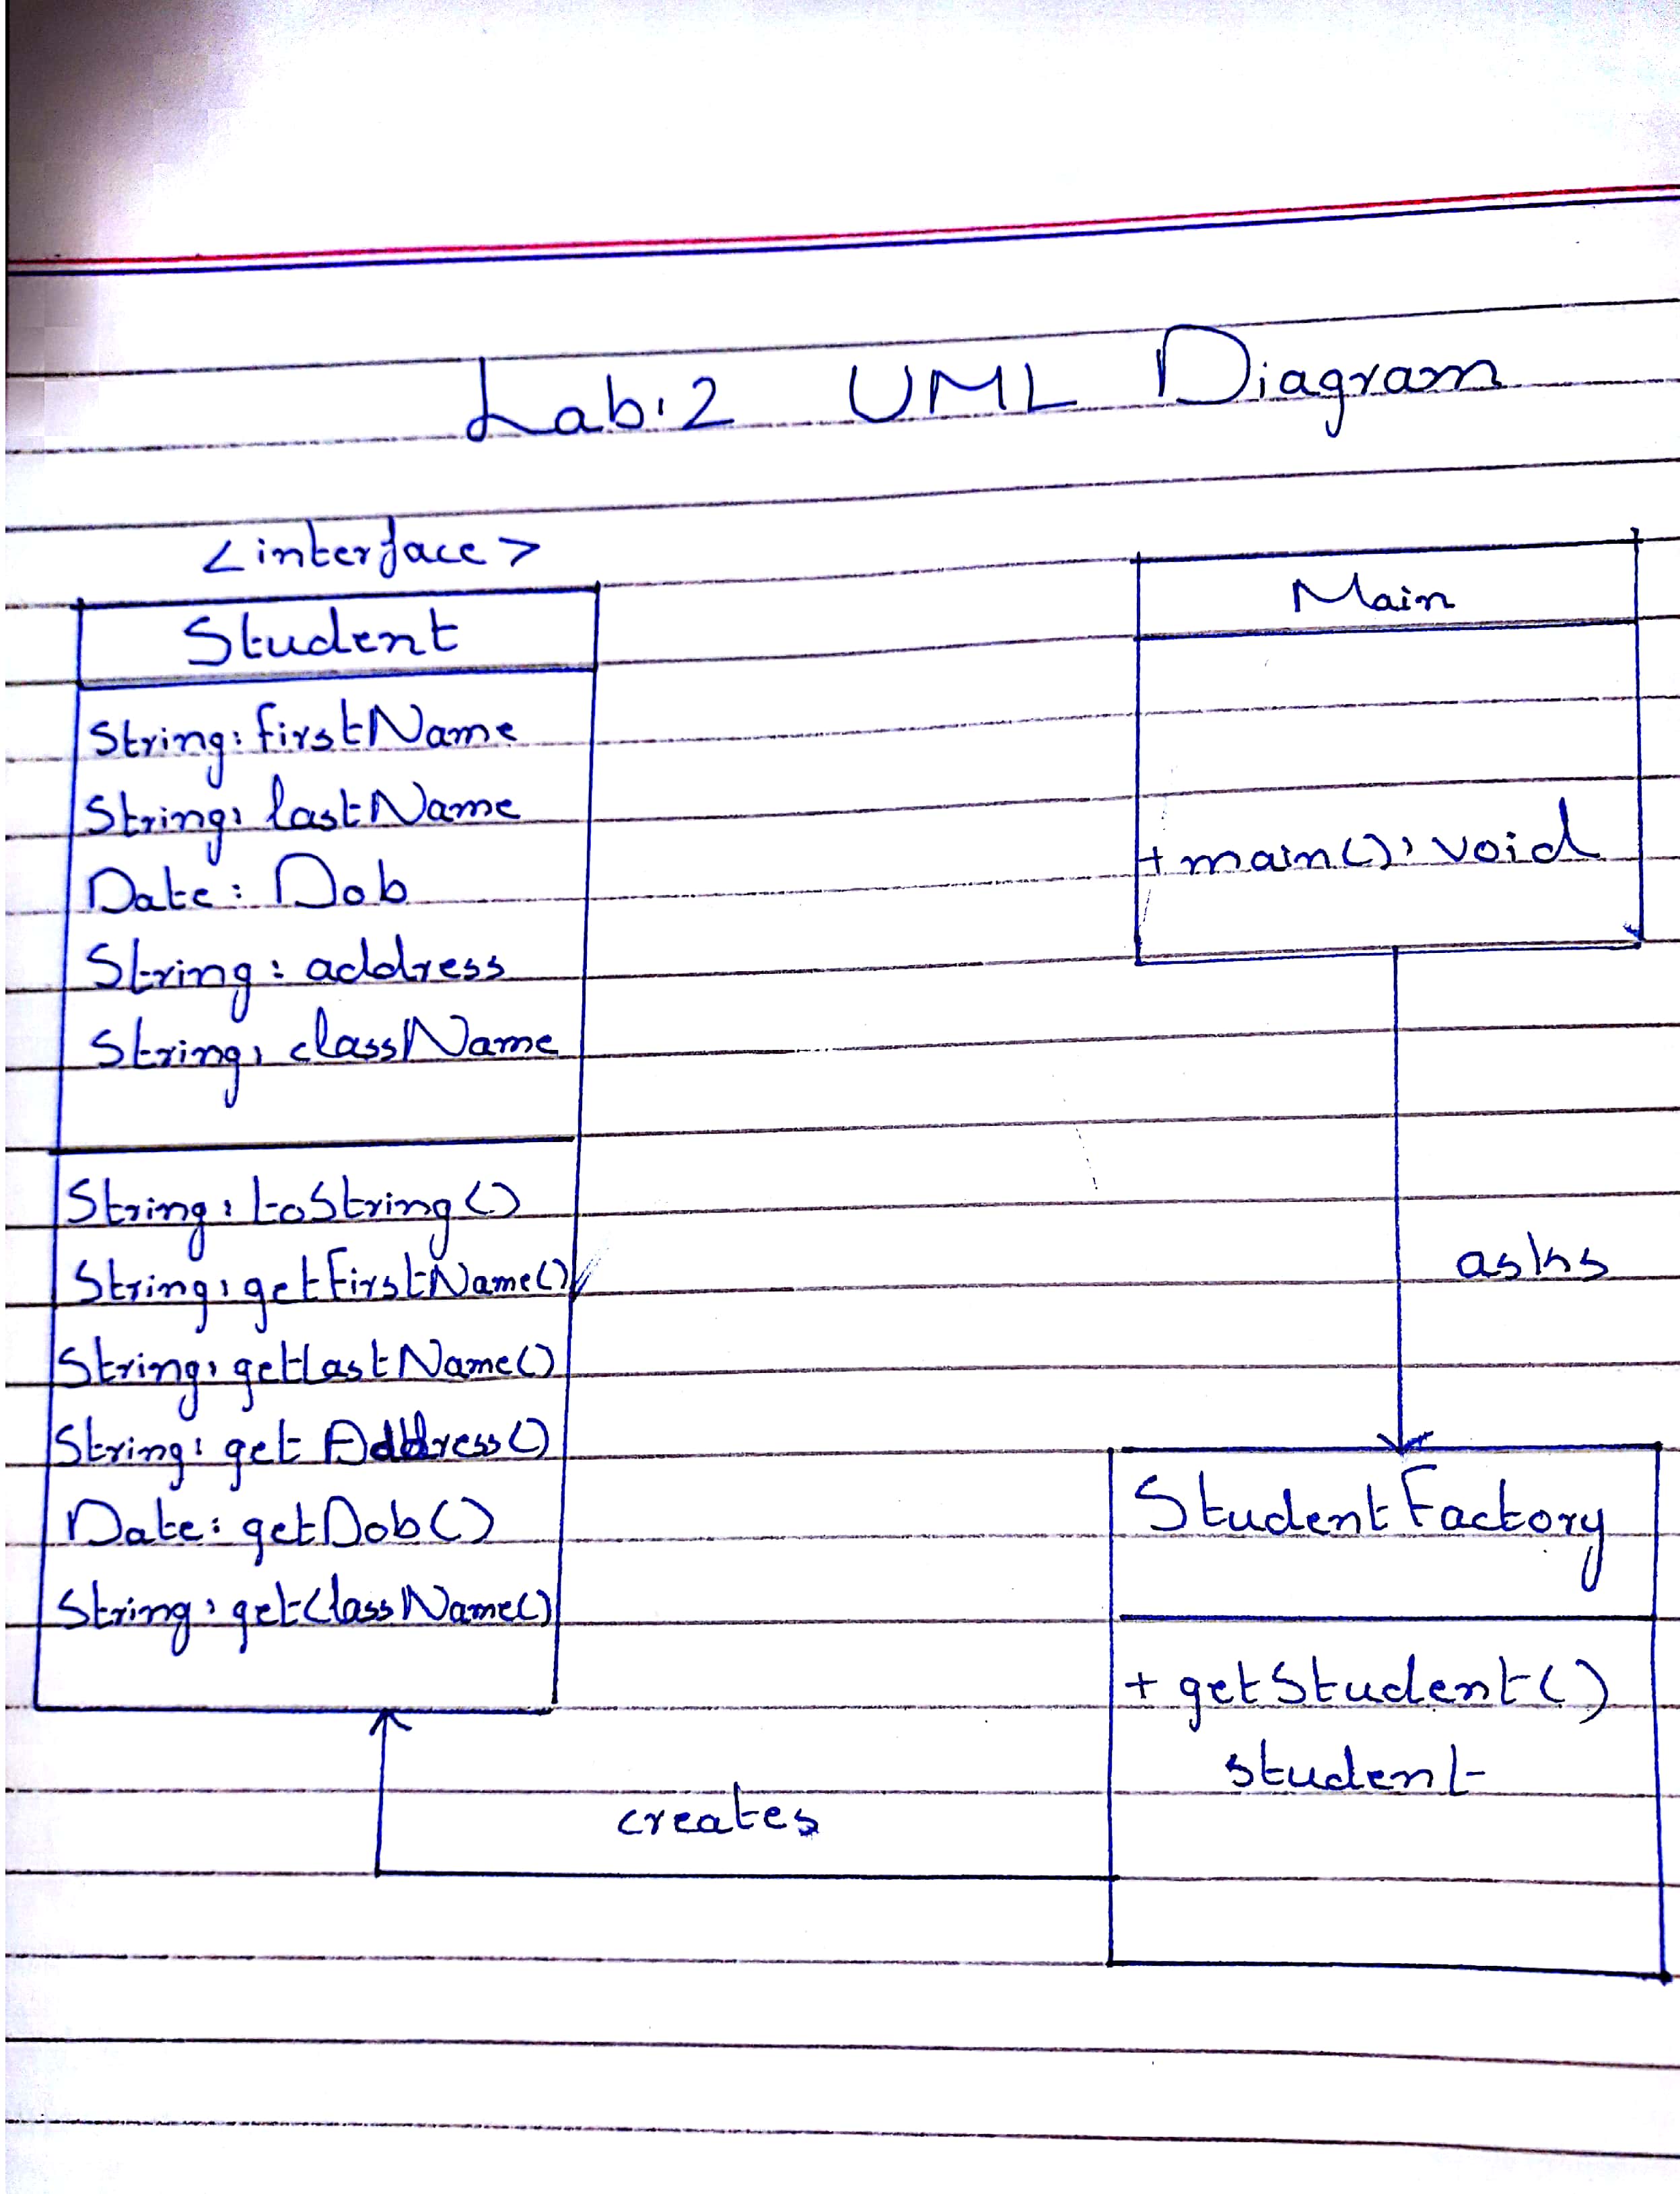 Lab:2 UML Diagram
<interface>
Student
String: firstName
String: lastName
Date: Dob
String: address
String: className
String: toString()
String: getFirstName()
String: getLastName()
String: get Address()
Date: getDob()
String: getClassName()
Main
+ main(): void
asks
StudentFactory
+ getStudent()
student
creates